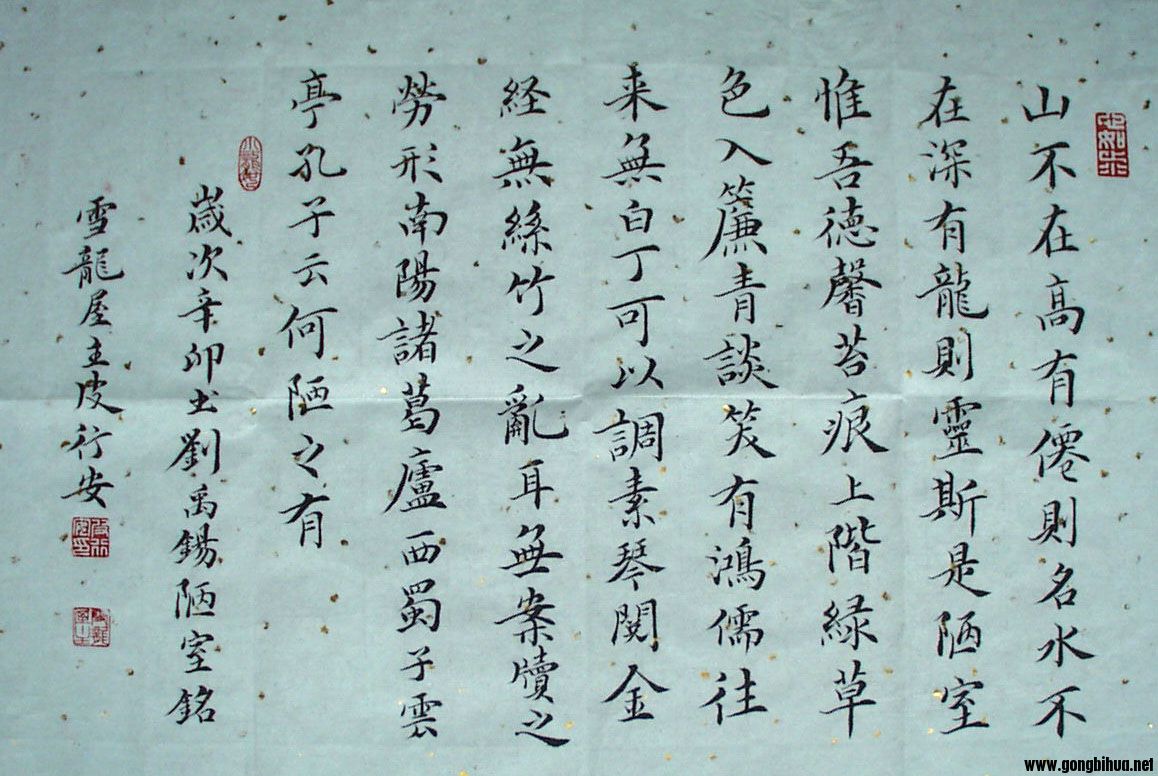 山不在高有僊則名水不
在深有龍則靈斯是陋室
惟吾德馨苔痕上階緑草
色入簾青談笑有鴻儒往
来無白丁可以調素琴閱金
経無絲竹之亂耳無案牘之
勞形南陽諸葛廬西蜀子雲
亭孔子云何陋之有
歲次辛卯书劉禹錫陋室銘
雪龍屋主皮行安
www.gongbihua.net